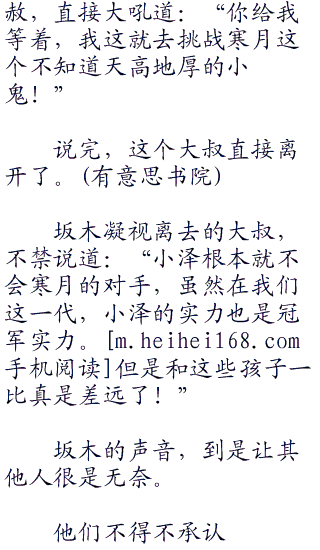 赦，直接大吼道：“你给我
等着，我这就去挑战寒月这
个不知道天高地厚的小
鬼！”
说完，这个大叔直接离
开了。(有意思书院)
坂木凝视离去的大叔，
不禁说道：“小泽根本就不
会寒月的对手，虽然在我们
这一代，小泽的实力也是冠
军实力。[m.heihei168.com
手机阅读]但是和这些孩子一
比真是差远了！”
坂木的声音，到是让其
他人很是无奈。
他们不得不承认